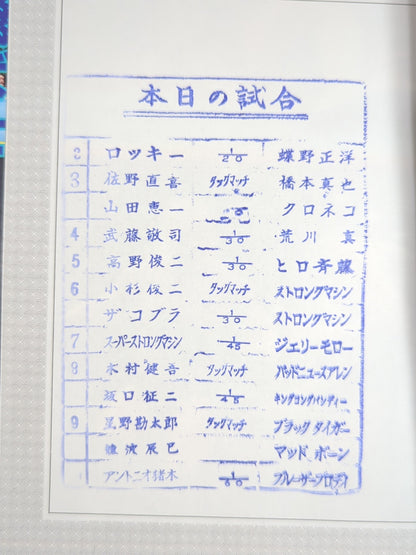 本日の試合
2 ロッキー 1/20 蝶野正洋
3 佐野直喜 タッグマッチ 橋本真也
山田恵一 クロネコ
4 武藤敬司 1/30 荒川真
5 高野俊二 1/30 ヒロ斉藤
6 小杉俊二 タッグマッチ ストロングマシン
ザコブラ 1/30 ストロングマシン
7 スーパーストロングマシン 1/45 ジェリーモロー
8 木村健吾 タッグマッチ バッドニュースアレン
坂口征二 1/45 キングコングバンディー
9 星野勘太郎 タッグマッチ ブラックタイガー
藤波辰巳 マッドボーン
アントニオ猪木 1/60 ブルーザーブロディ